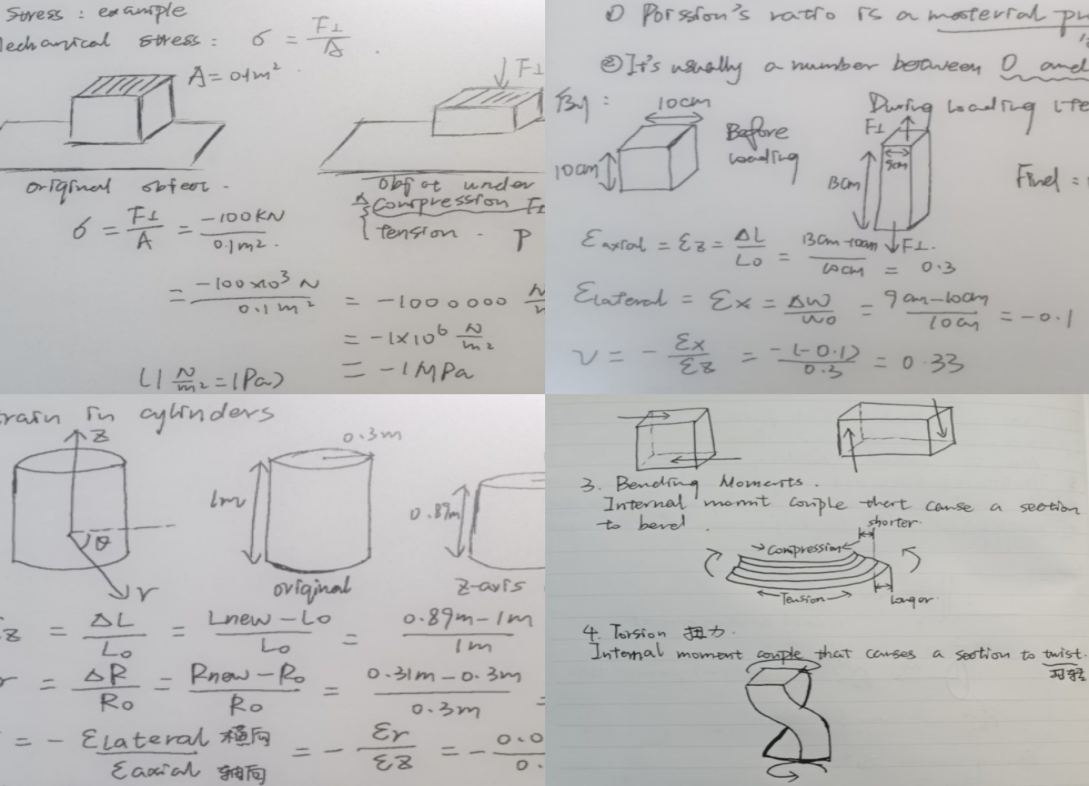 Stress : example
Mechanical stress : σ = F⊥/A .
A = 0.1m²
F⊥
original object .
Object under
Compression F⊥
tension . P
σ = F⊥/A = -100KN/0.1m² .
= -100×10³ N/0.1m² = -1000000 N/m²
= -1×10⁶ N/m²
(1 N/m² = 1Pa) = -1MPa
① Poission's ratio is a material
② It's usually a number between 0 and
10cm
10cm
Before
loading
During loading
F⊥
9cm
13cm
F⊥.
Final =
Eaxial = Ez = ΔL/L0 = 13cm-10cm/10cm = 0.3
Elateral = Ex = ΔW/W0 = 9cm-10cm/10cm = -0.1
ν = - Ex/Ez = -(-0.1)/0.3 = 0.33
in cylinders
z
θ
r
0.3m
1m
original
0.89m
z-axis
z = ΔL/L0 = Lnew-L0/L0 = 0.89m-1m/1m
r = ΔR/R0 = Rnew-R0/R0 = 0.31m-0.3m/0.3m =
= - Elateral 横向/Eaxial 轴向 = - Er/Ez = -
3. Bending Moments .
Internal momnt couple thert cause a section
to bend .
shorter
Compression
Tension
Longer
4. Torsion 扭力 .
Internal moment couple that causes a section to twist.